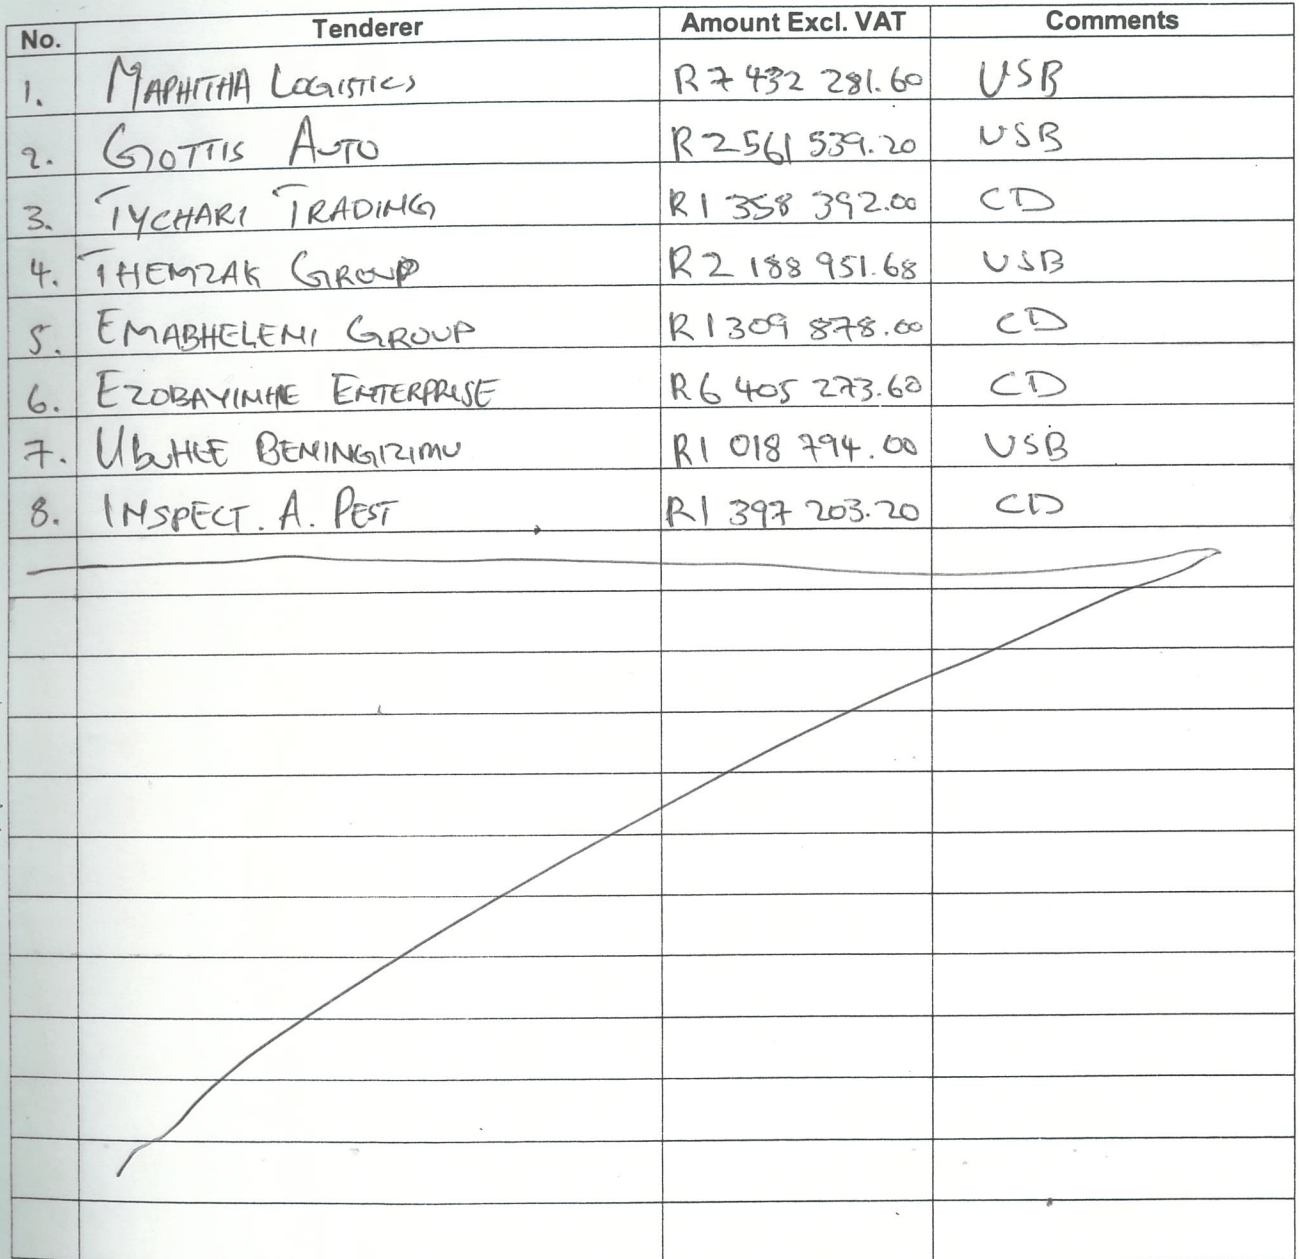 No. Tenderer Amount Excl. VAT Comments
1. MAPHITHA LOGISTICS R7 432 281.60 USB
2. GOTTIS AUTO R2 561 539.20 USB
3. TYCHARI TRADING R1 358 392.00 CD
4. THEMZAK GROUP R2 188 951.68 USB
5. EMABHELENI GROUP R1 309 878.00 CD
6. EZOBAYINHE ENTERPRISE R6 405 273.60 CD
7. UBUHLE BENINGIZIMU R1 018 794.00 USB
8. INSPECT. A. PEST R1 397 203.20 CD